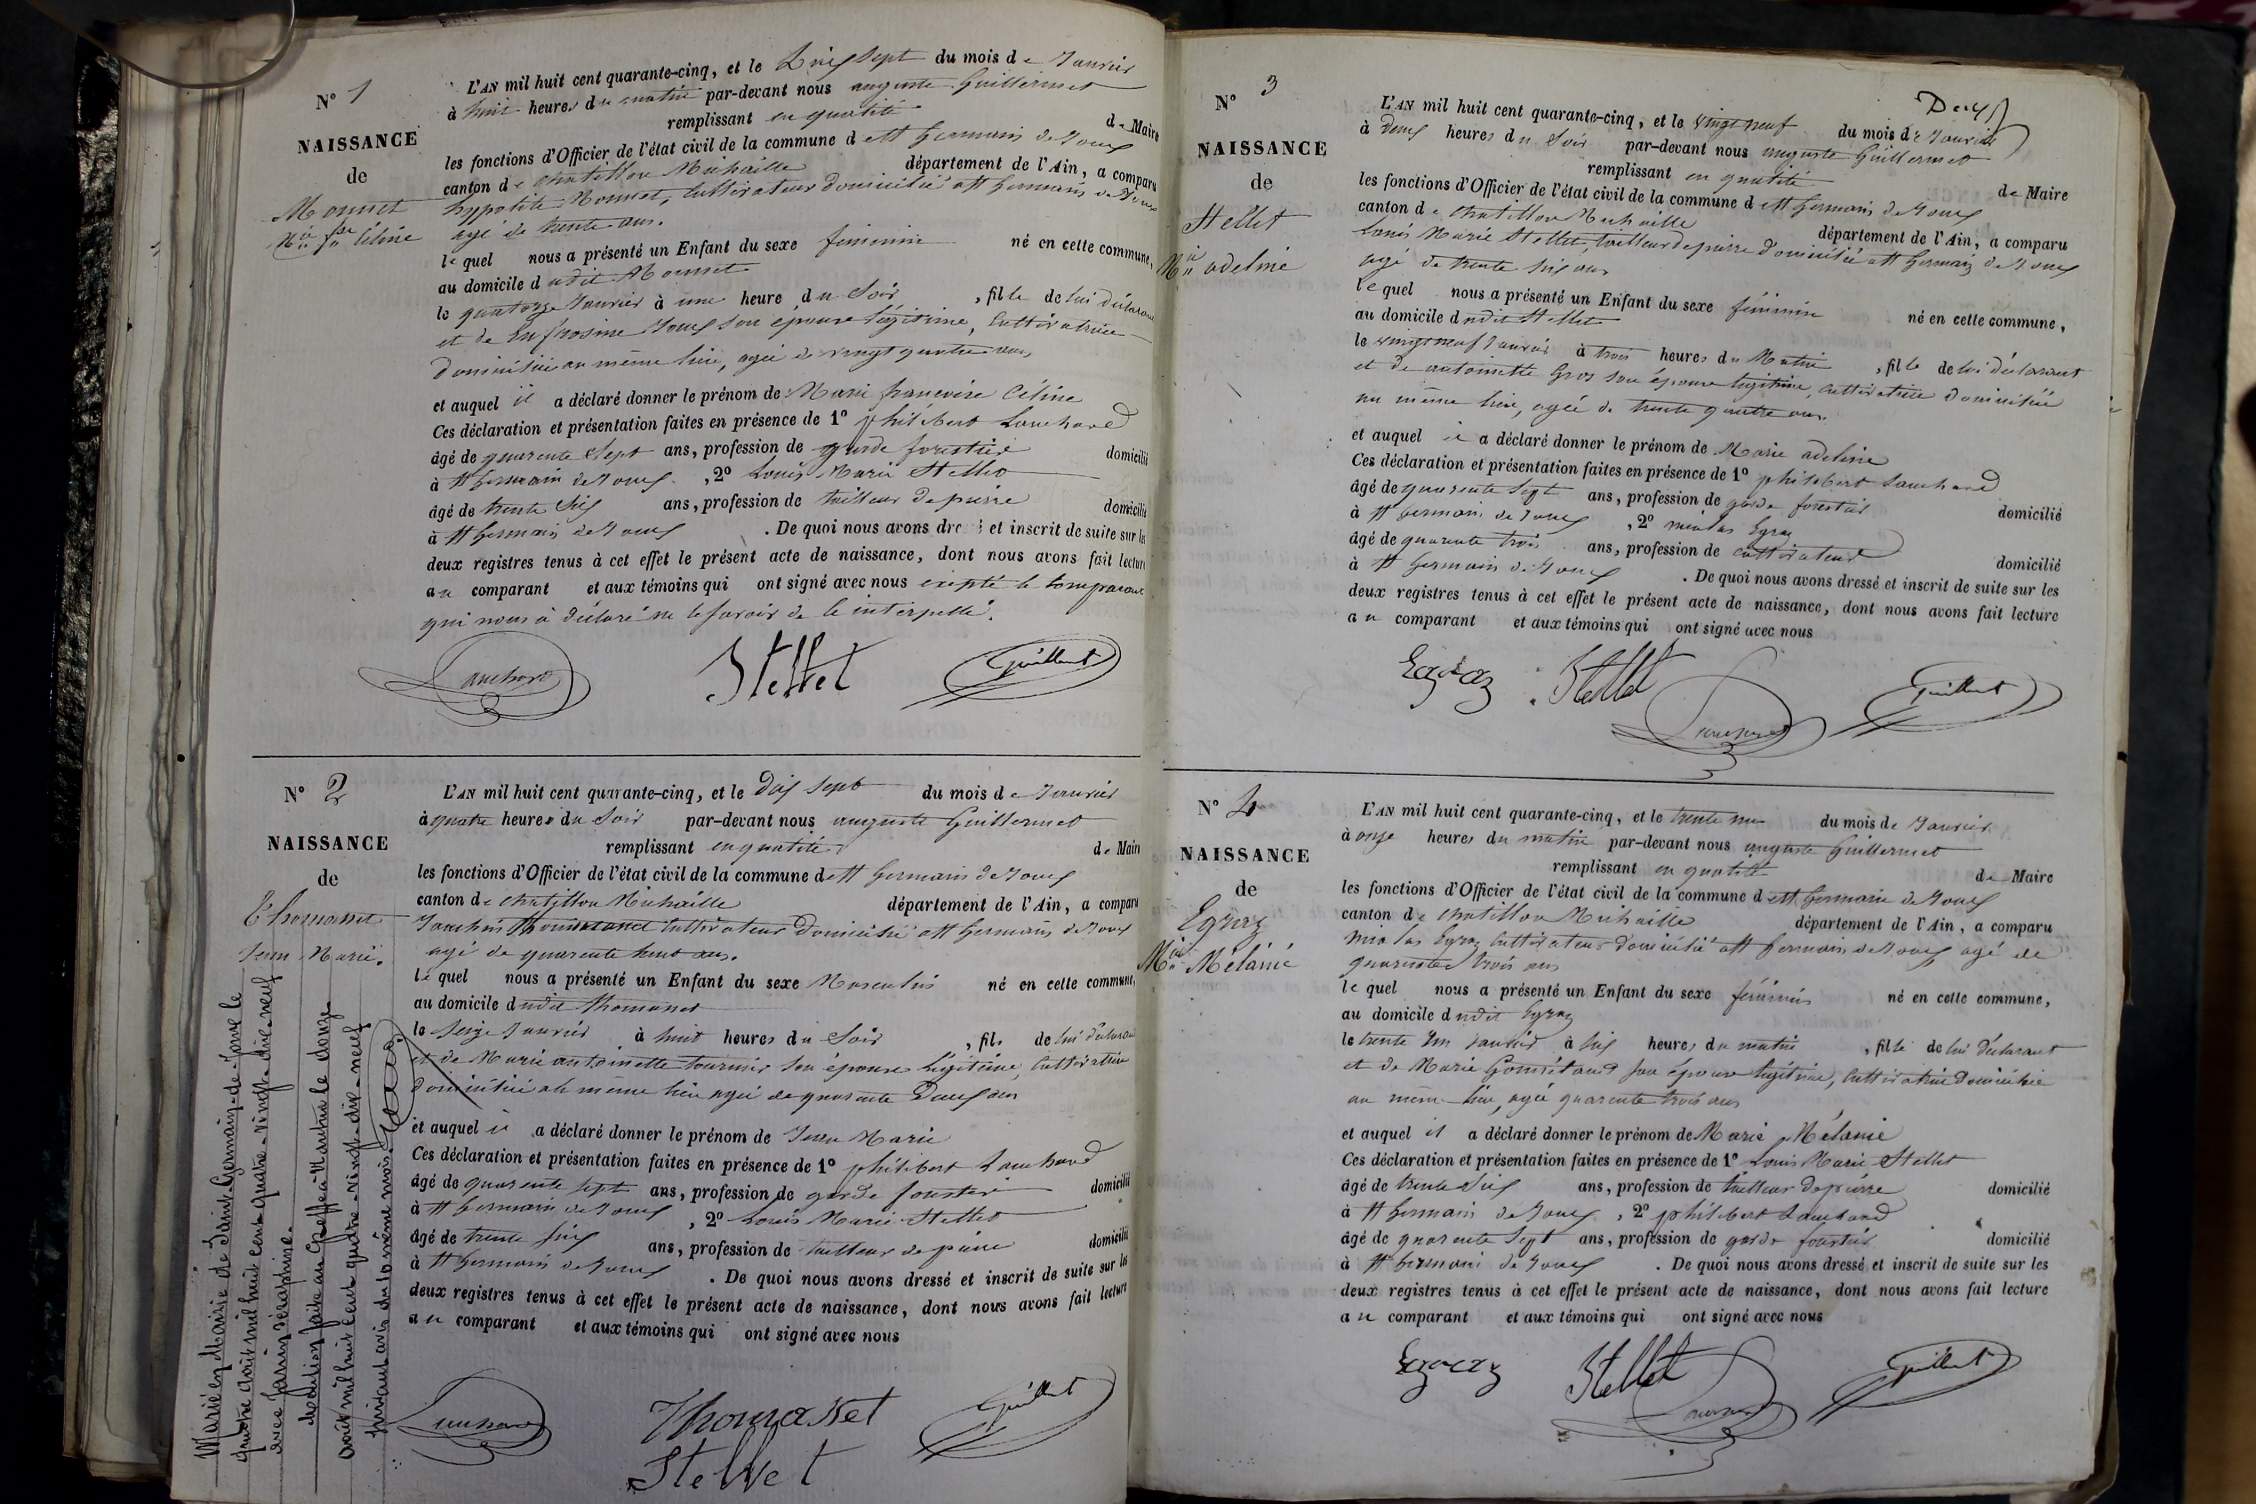 N° 1
NAISSANCE
de
Monnet
Mie fse Céline
L'AN mil huit cent quarante-cinq, et le dix sept du mois de Janvier
à huit heures du matin par-devant nous auguste Guillermet
remplissant en qualité de Maire
les fonctions d'Officier de l'état civil de la commune de St Germain de Joux
canton de Chatillon Michaille département de l'Ain, a comparu
hypolite Monnet, Cultivateur domicilié a St Germain de Joux
agé de trente ans.
lequel nous a présenté un Enfant du sexe féminin né en cette commune,
au domicile dudit Monnet
le quatorze Janvier à une heure du Soir, fille de lui déclarant
et de Eufrosine Joux son épouse légitime, Cultivatrice
domiciliée au même lieu, agée de vingt quatre ans
et auquel il a déclaré donner le prénom de Marie françoise Céline
Ces déclaration et présentation faites en présence de 1° philibert Louchard
âgé de quarente sept ans, profession de garde forestier domicilié
à St Germain de Joux, 2° Louis Marie Stellet
âgé de trente six ans, profession de tailleur de pierre domicilié
à St Germain de Joux. De quoi nous avons dre é et inscrit de suite sur les
deux registres tenus à cet effet le présent acte de naissance, dont nous avons fait lecture
au comparant et aux témoins qui ont signé avec nous exepté le Comparant
qui nous à déclaré ne le savoir de le interpellé.
Stellet Guillermet
N° 2
NAISSANCE
de
Thomasset
Jean Marie.
L'AN mil huit cent quarante-cinq, et le dix sept du mois de Janvier
à quatre heures du Soir par-devant nous auguste Guillermet
remplissant en qualité de Maire
les fonctions d'Officier de l'état civil de la commune de St Germain de Joux
canton de Chatillon Michaille département de l'Ain, a comparu
Joachim Thomasset Cultivateur domicilié a St Germain de Joux
agé de quarente huit ans.
lequel nous a présenté un Enfant du sexe Masculin né en cette commune,
au domicile dudit Thomasset
le seize Janvier à huit heures du Soir, fils de lui déclarant
et de Marie antoinette tournier son épouse légitime, Cultivatrice
domiciliée au même lieu agée de quarente deux ans
et auquel il a déclaré donner le prénom de Jean Marie
Ces déclaration et présentation faites en présence de 1° philibert Louchard
âgé de quarente sept ans, profession de garde forestier domicilié
à St Germain de Joux, 2° Louis Marie Stellet
âgé de trente six ans, profession de tailleur de pierre domicilié
à St Germain de Joux. De quoi nous avons dressé et inscrit de suite sur les
deux registres tenus à cet effet le présent acte de naissance, dont nous avons fait lecture
au comparant et aux témoins qui ont signé avec nous
Thomasset Guillermet
Stellet
Marié en Mairie de Saint-Germain-de-Joux le
quatre août mil huit cent quatre-vingt-dix-neuf
avec Jarrin Séraphine.
Mention faite au Greffe à Nantua le douze
août mil huit cent quatre-vingt-dix-neuf
suivant avis du même mois.
N° 3
NAISSANCE
de
Stellet
Mie adeline
L'AN mil huit cent quarante-cinq, et le vingt neuf du mois de Janvier
à deux heures du Soir par-devant nous auguste Guillermet
remplissant en qualité de Maire
les fonctions d'Officier de l'état civil de la commune de St Germain de Joux
canton de Chatillon Michaille département de l'Ain, a comparu
Louis Marie Stellet, tailleur de pierre domicilié a St Germain de Joux
agé de trente six ans
lequel nous a présenté un Enfant du sexe féminin né en cette commune,
au domicile dudit Stellet
le vingt neuf Janvier à trois heures du Matin, fille de lui déclarant
et de antoinette Gros son épouse légitime, Cultivatrice domiciliée
au même lieu, agée de trente quatre ans.
et auquel il a déclaré donner le prénom de Marie adeline
Ces déclaration et présentation faites en présence de 1° philibert Louchard
âgé de quarente sept ans, profession de garde forestier domicilié
à St Germain de Joux, 2° nicolas Egraz
âgé de quarente trois ans, profession de cultivateur domicilié
à St Germain de Joux. De quoi nous avons dressé et inscrit de suite sur les
deux registres tenus à cet effet le présent acte de naissance, dont nous avons fait lecture
au comparant et aux témoins qui ont signé avec nous
Egraz Stellet Guillermet
N° 4
NAISSANCE
de
Egraz
Mie Mélanie
L'AN mil huit cent quarante-cinq, et le trente un du mois de Janvier
à onze heures du matin par-devant nous auguste Guillermet
remplissant en qualité de Maire
les fonctions d'Officier de l'état civil de la commune de St Germain de Joux
canton de Chatillon Michaille département de l'Ain, a comparu
nicolas Egraz Cultivateur domicilié a St Germain de Joux agé de
quarente trois ans
lequel nous a présenté un Enfant du sexe féminin né en cette commune,
au domicile dudit Egraz
le trente un Janvier à six heures du matin, fille de lui déclarant
et de Marie son épouse légitime, Cultivatrice domiciliée
au même lieu, agée quarente trois ans
et auquel il a déclaré donner le prénom de Marie Mélanie
Ces déclaration et présentation faites en présence de 1° Louis Marie Stellet
âgé de trente six ans, profession de tailleur de pierre domicilié
à St Germain de Joux, 2° philibert Louchard
âgé de quarente sept ans, profession de garde forestier domicilié
à St Germain de Joux. De quoi nous avons dressé et inscrit de suite sur les
deux registres tenus à cet effet le présent acte de naissance, dont nous avons fait lecture
au comparant et aux témoins qui ont signé avec nous
Egraz Stellet Guillermet